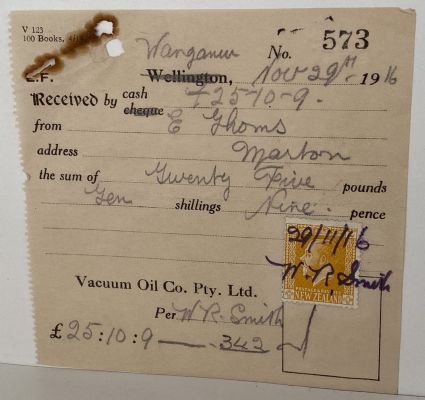 V 123
100 Books,
Wanganui No. 573
L.F. Wellington, Nov 29th 1916
Received by cash £25-10-9.
cheque
from E Thoms
address Marton
the sum of Twenty Five pounds
Ten shillings Nine pence
29/11/16
W. R. Smith
POSTAGE & REVENUE
NEW ZEALAND
Vacuum Oil Co. Pty. Ltd.
Per W R. Smith
£25:10:9 — 342